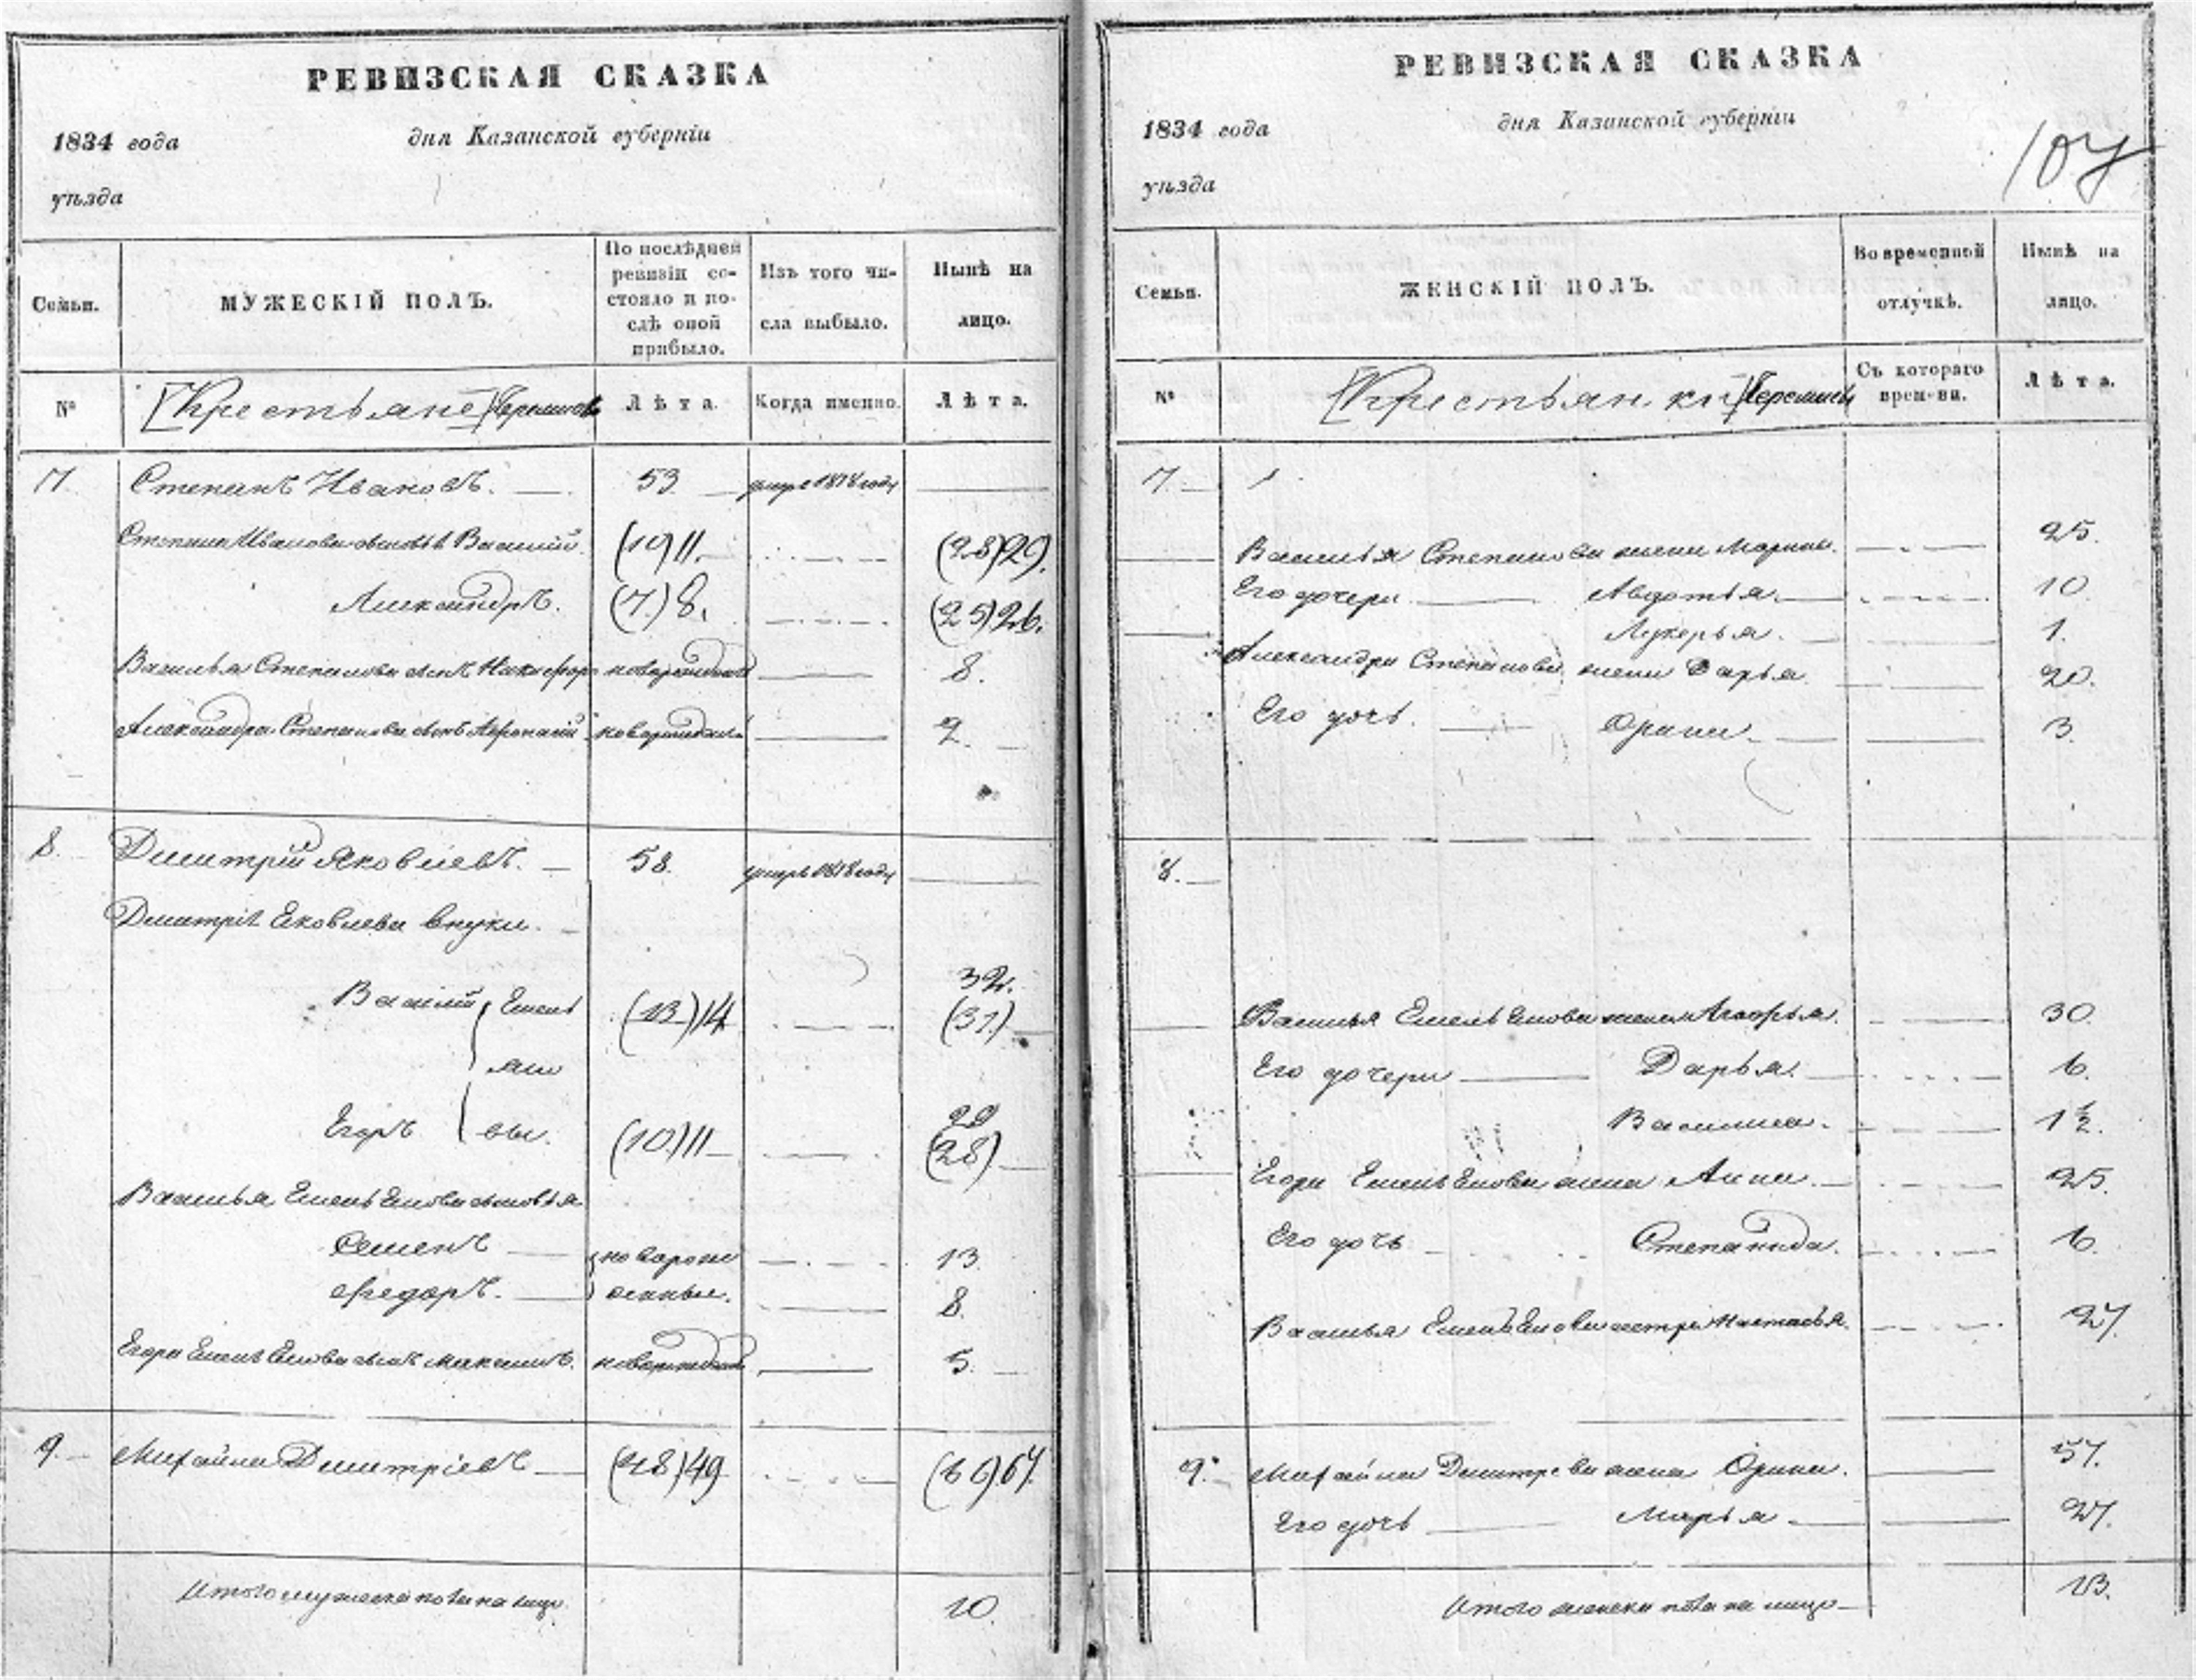 РЕВИЗСКАЯ СКАЗКА
1834 года дня Казанской губерніи
уѣзда
Семьи.
МУЖЕСКІЙ ПОЛЪ.
По послѣдней ревизіи состояло и послѣ оной прибыло.
Изъ того числа выбыло.
Нынѣ на лицо.
№ [Крестьяне] Лѣта. Когда именно. Лѣта.
7. Степанъ Ивановъ. 53 умре 1818 году
Степана Иванова сыновья Василій. (10)11. (28)29.
Александръ. (7.)8. (25)26.
Василья Степанова сынъ Никифоръ новорожденный 8.
Александра Степанова сынъ новорожденный 2.
8. Дмитрій Яковлевъ. 58. умре 1818 году
Дмитрія Яковлева внуки.
32.
Василій Емель (13)14 (31.)
яно
29
Егоръ вы. (10)11 (28)
Василья Емельянова сыновья
Семенъ новорож 13
Федоръ. денные. 8.
Егора Емельянова сынъ Максимъ. новорожденный 5.
9. Михайла Дмитріевъ (48)49 (66)67.
Итого мужеска пола на лицо 10.
РЕВИЗСКАЯ СКАЗКА
1834 года дня Казанской губерніи
107
уѣзда
Семьи.
ЖЕНСКІЙ ПОЛЪ.
Во временной отлучкѣ.
Нынѣ на лицо.
№ [Крестьянки] Съ котораго времени. Лѣта.
7.
Василья Степанова жена Марина. 25.
Его дочери Авдотья. 10.
Лукерья. 1.
Александра Степанова жена Дарья 20.
Его дочь. Орина. 3.
8.
Василья Емельянова жена 30.
Его дочери Дарья. 6.
Василиса. 1½.
Егора Емельянова жена Анна. 25.
Его дочь Степанида. 6.
Василья Емельянова сестра Настасья. 27.
9. Михайла Дмитрева жена Орина. 57.
Его дочь Марья. 27.
Итого женска пола на лицо 13.